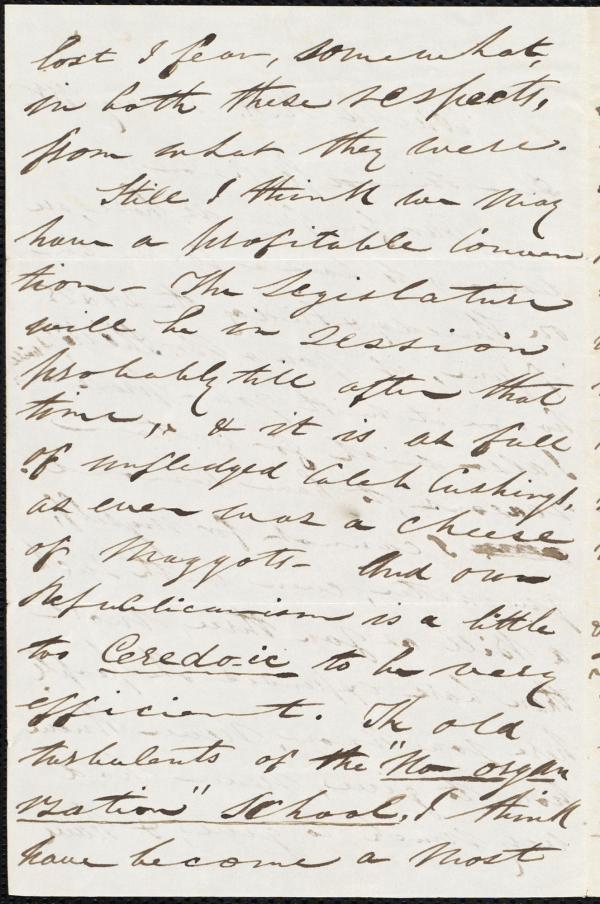 lost I fear, somewhat,
in both these respects,
from what they were.
Still I think we may
have a profitable Conven
tion – The Legislature
will be in session
probably till after that
time, & it is as full
of unfledged Caleb Cushings,
as ever was a cheese
of maggots – And our
Republicanism is a little
too Ceredo-ic to be very
efficient. The old
turbulents of the "No organ
ization" school, I think
have become a most